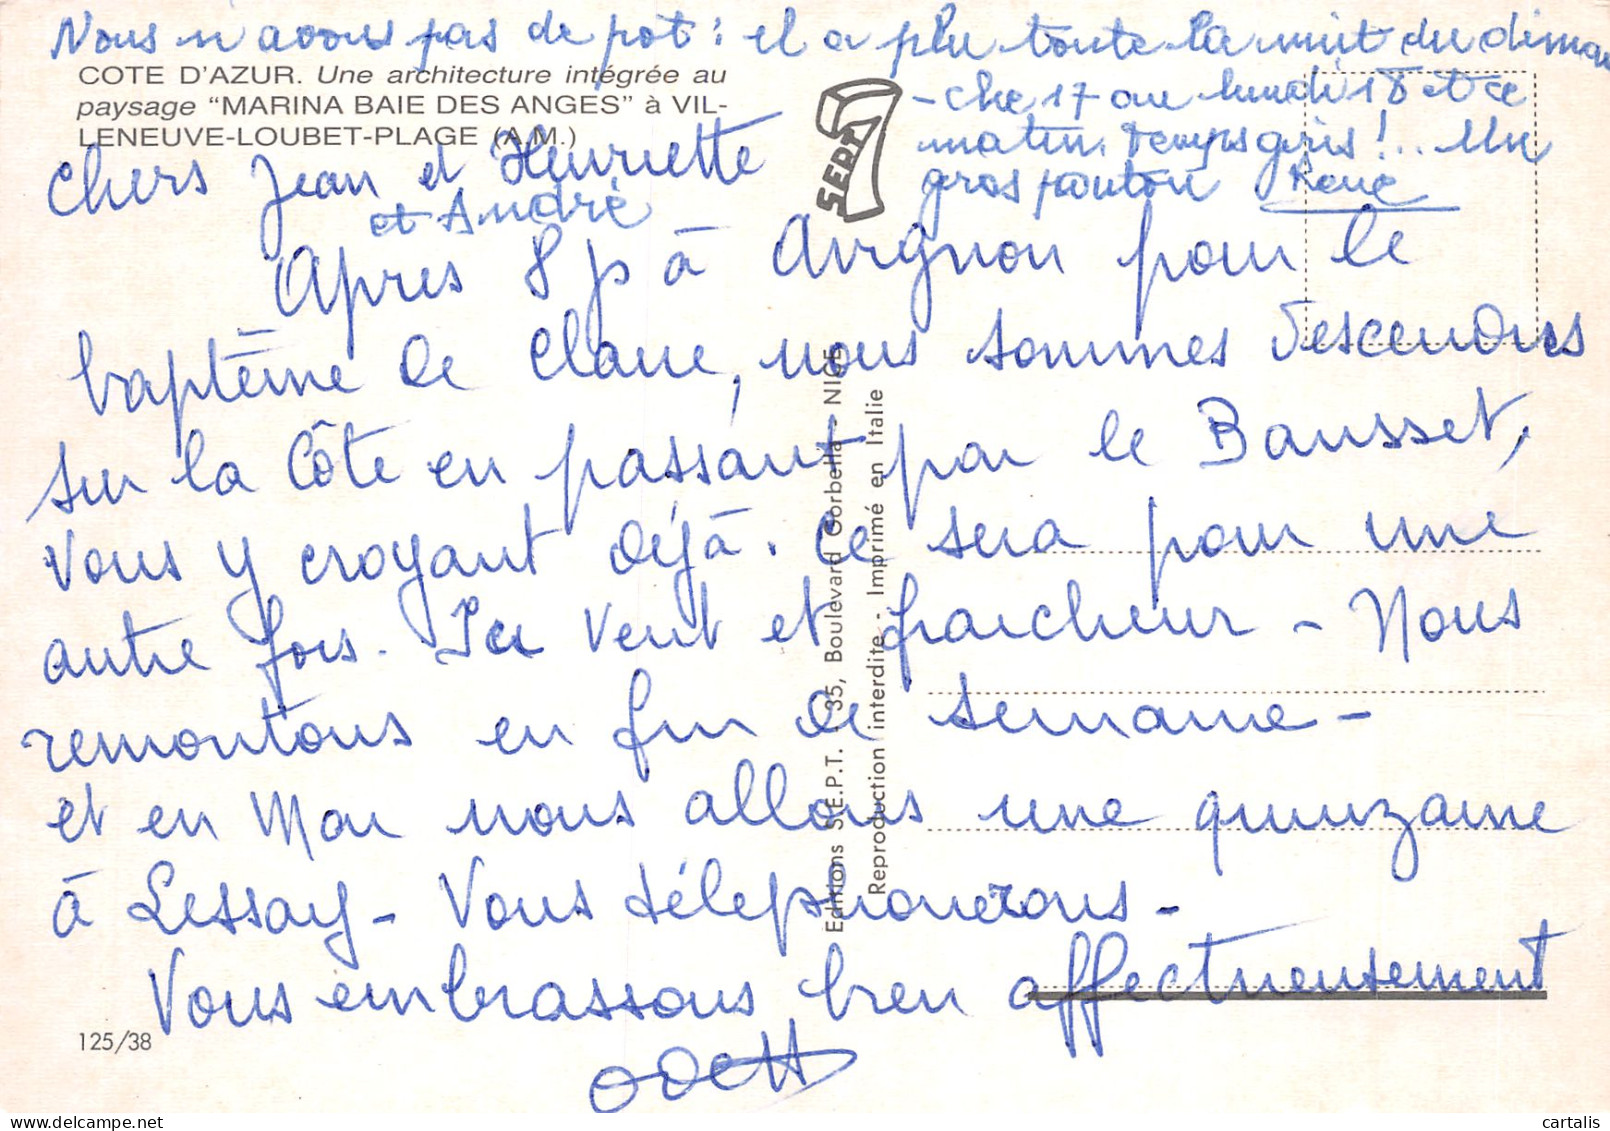 Nous n'avons pas de pot : il a plu toute la nuit du diman
-che 17 au lundi 18 et ce
matin. Temps gris !.. Un
gros pouton René
COTE D'AZUR. Une architecture intégrée au
paysage "MARINA BAIE DES ANGES" à VIL-
LENEUVE-LOUBET-PLAGE (A.M.)
SEPT
7
Chers Jean et Henriette
et André
Après 8 j à Avignon pour le
baptême de Claire, nous sommes descendus
sur la Côte en passant par le Bausset,
vous y croyant déjà. Ce sera pour une
autre fois. Ici vent et fraicheur - Nous
remontons en fin de semaine -
et en Mai nous allons une quinzaine
à Lessay - Vous téléphonerons -
Vous embrassons bien affectueusement
Odette
Editions S.E.P.T. 35, Boulevard Gorbella - NICE
Reproduction interdite - Imprimé en Italie
125/38
cartalis